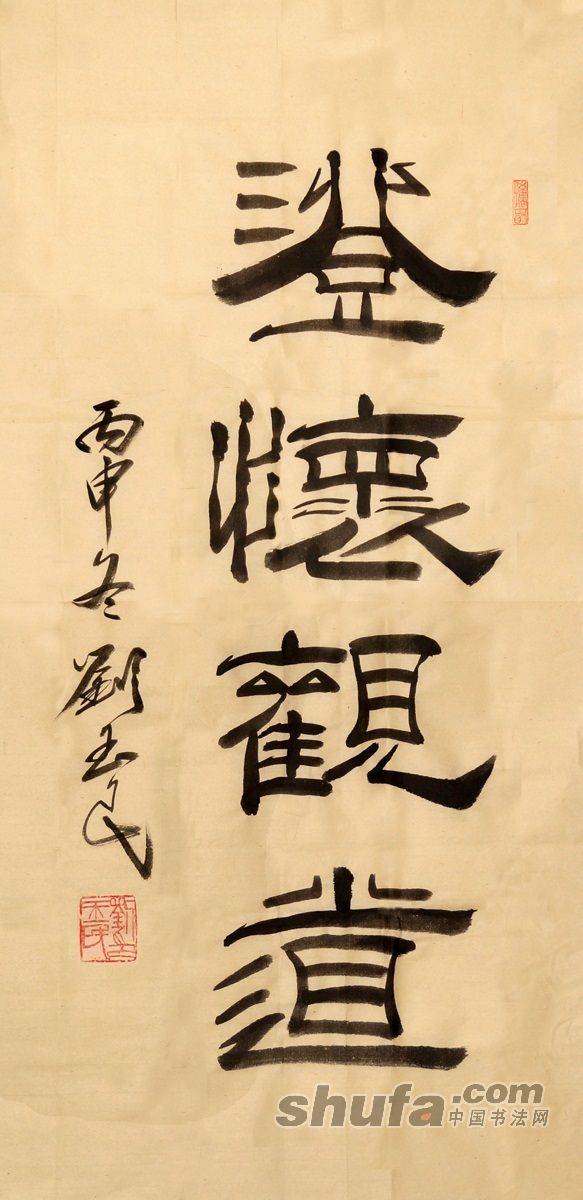 澄懷觀道
丙申冬劉玉民
shufa.com
中国书法网